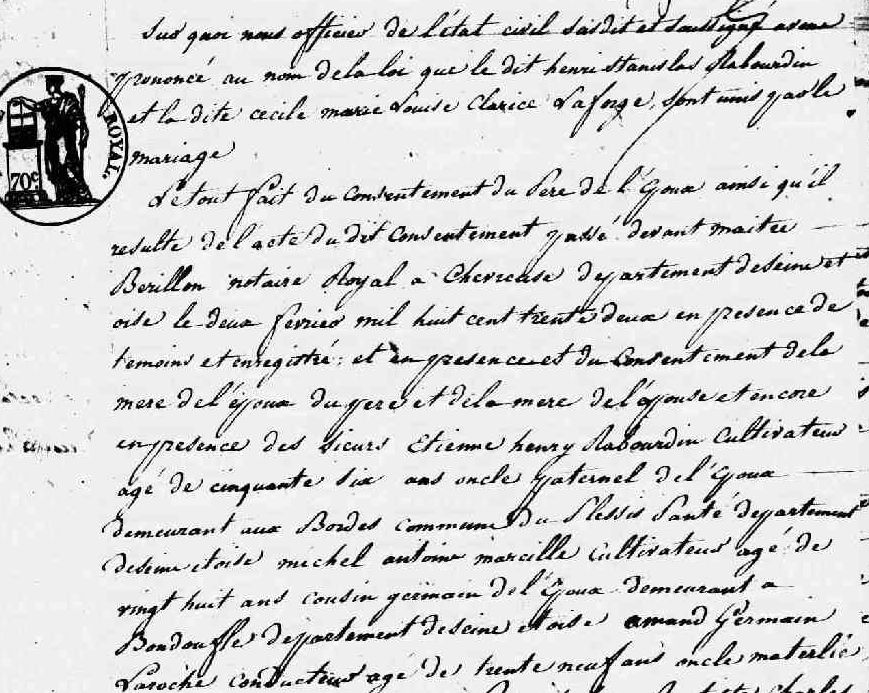 Sur quoi nous officier de l'état civil susdit et soussigné avons
prononcé au nom de la loi que le dit henri stanislas Rabourdin
et la dite cecile marie Louise Clarice Laforge, sont unis par le
mariage
ROYAL.
70c
Le tout fait du consentement du Pere de l'Epoux ainsi qu'il
resulte de l'acte du dit Consentement passé devant maitre
Berillon notaire Royal a Chevreuse departement de seine et
oise le deux fevrier mil huit cent trente deux en presence de
temoins et enregistré; et en presence et du Consentement de la
mere de l'époux du pere et de la mere de l'épouse et encore
en presence des sieurs Etienne henry Rabourdin Cultivateur
agé de cinquante six ans oncle paternel de l'Epoux
demeurant aux Bordes commune du Plessis Panté departement
de seine et oise michel antoine marcille Cultivateur agé de
vingt huit ans cousin germain de l'Epoux demeurant a
Bondoufle departement de seine et oise amand Germain
Laroche conducteur agé de trente neuf ans oncle materlle
Charles